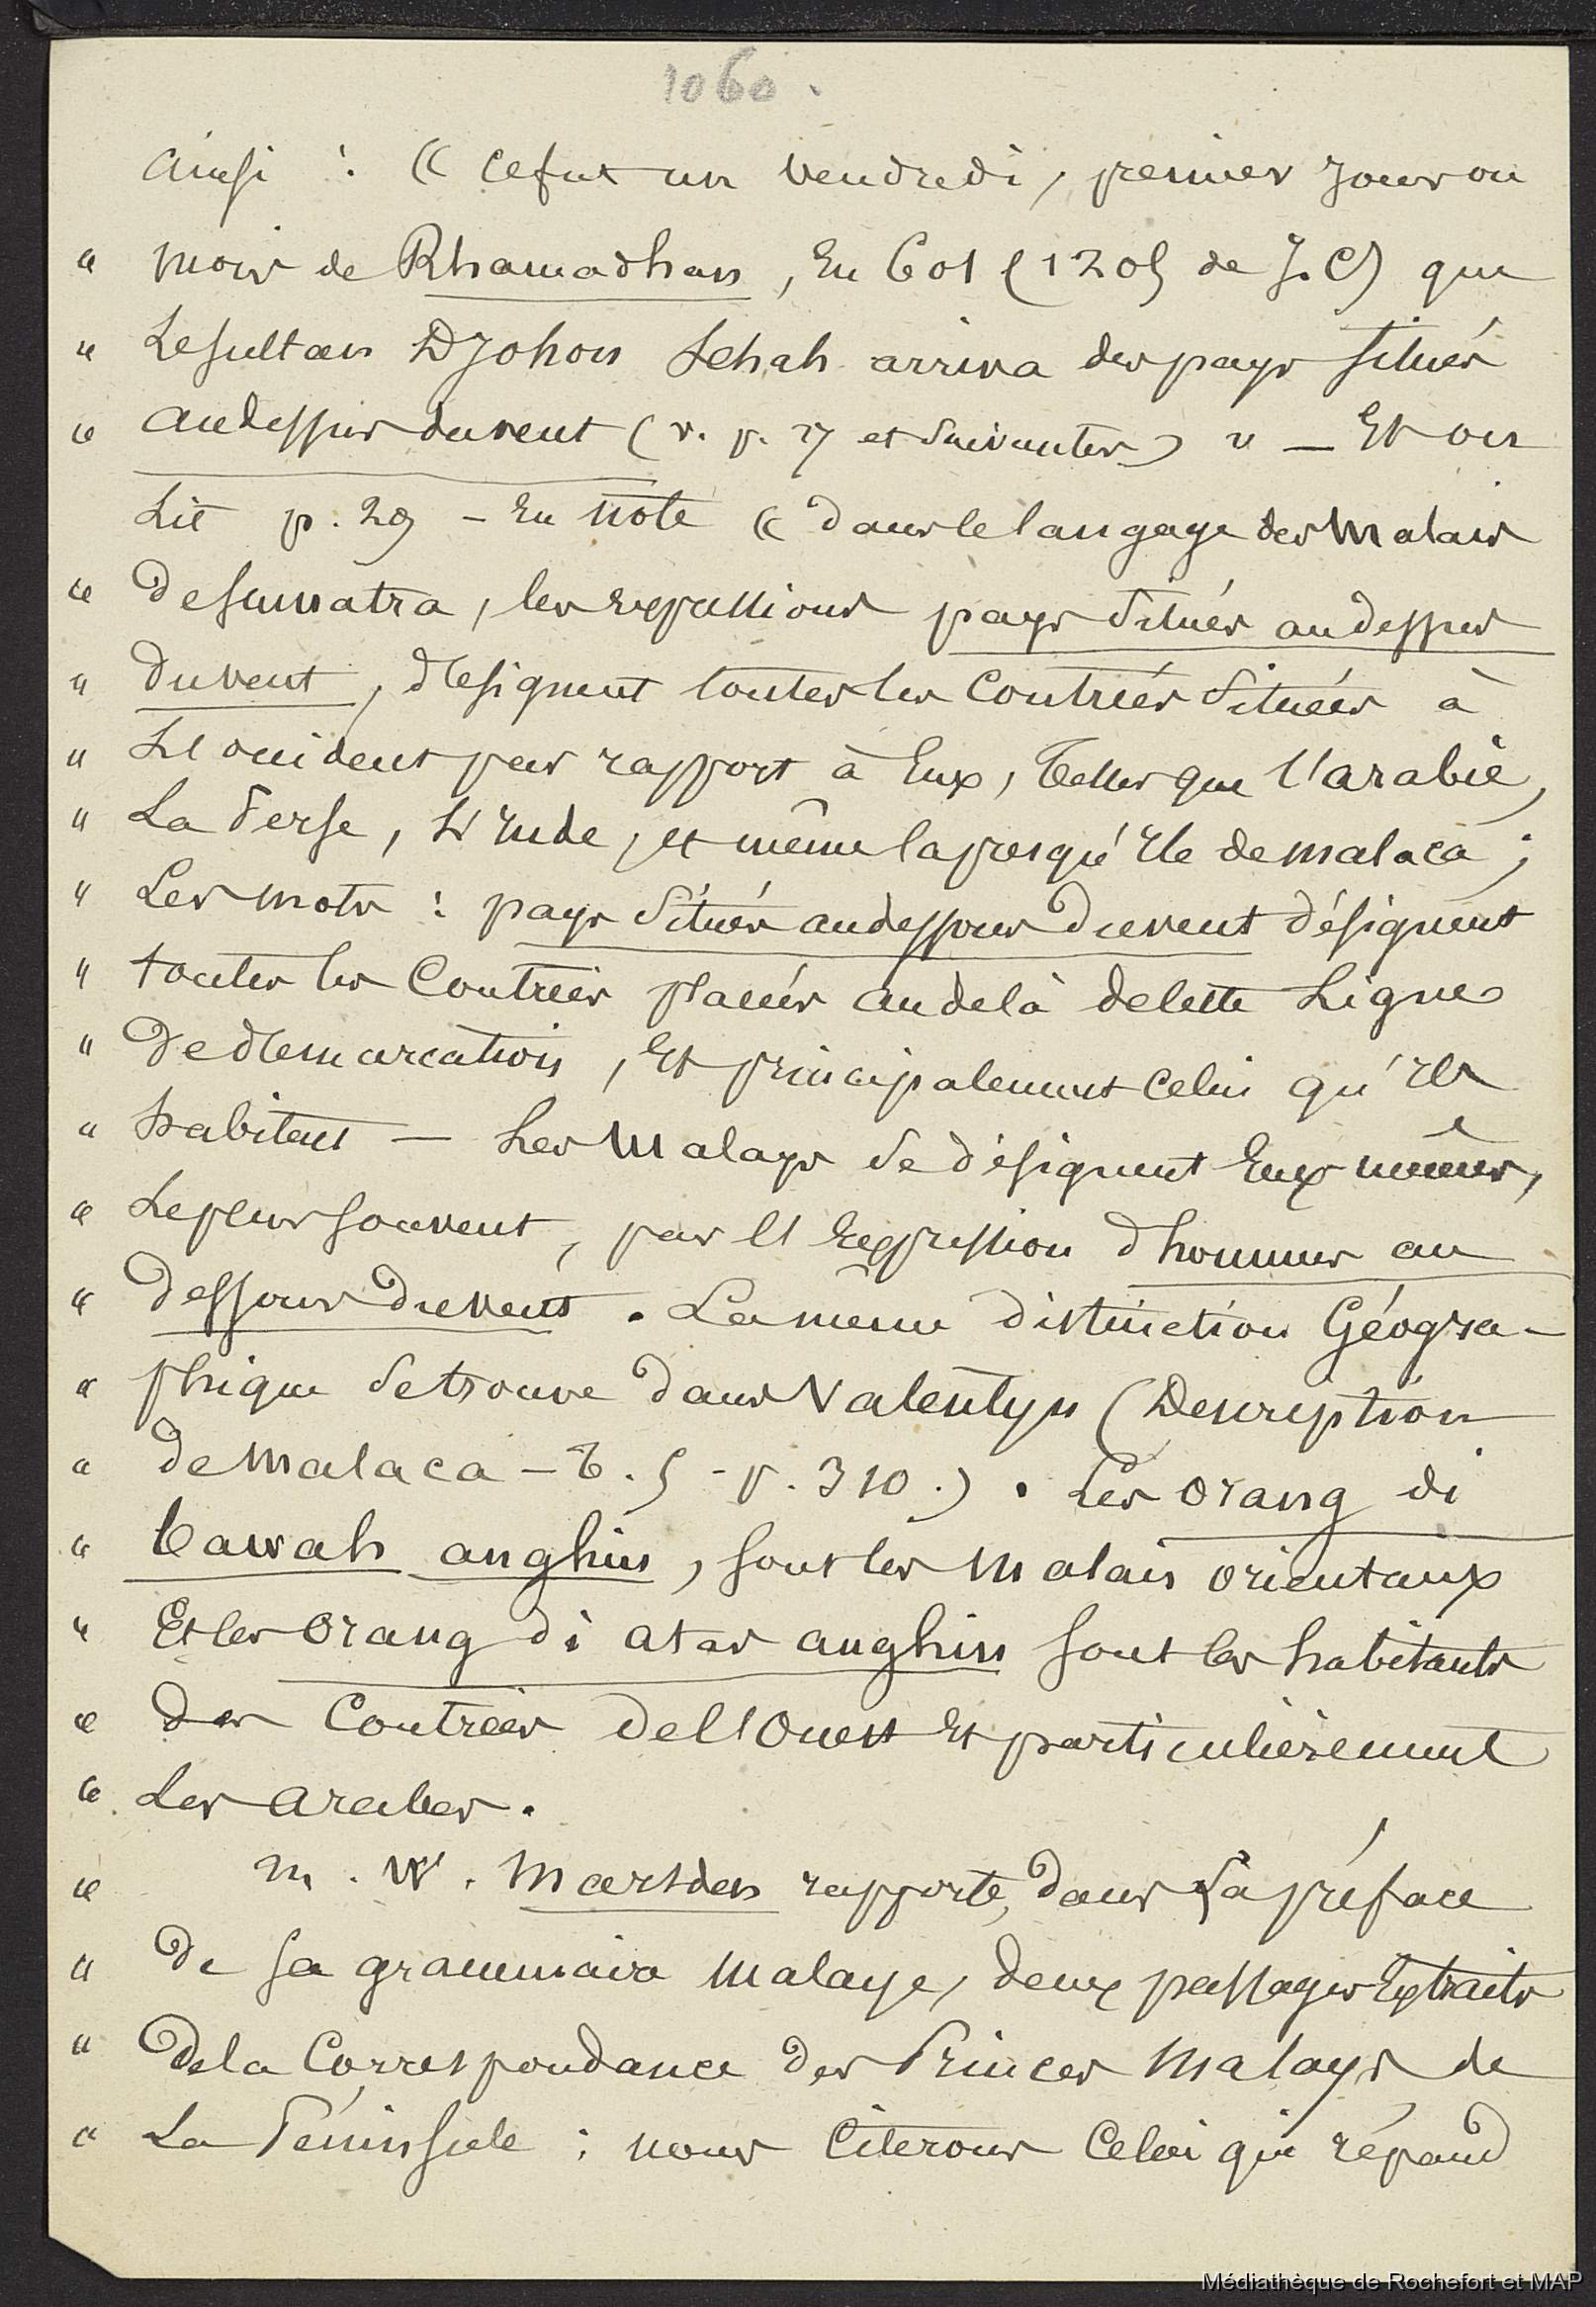 1060.
Ainsi : « ce fut un vendredi, premier jour du
« mois de Rhamadhan, En 601 (1205 de J. C) que
« Le sultan Djohon Schah arriva des pays situés
« au dessus du vent (v. p. 27 et suivantes) » — Et on
Lit p. 29 – En note « dans le langage des Malais
« de sumatra, les expressions pays situés au dessus
« du vent, désignent toutes les Contrées situées à
« L'occident par rapport à Eux, telles que l'arabie,
« La Perse, L'Inde, et même la presqu'Ile de malaca ;
« Les mots : pays situés au dessous du vent désignent
« toutes les Contrées placées au delà de cette Ligne
« De démarcation, Et principalement celui qu'Ils
« habitent — Les Malays se désignent Eux mêmes,
« Le plus souvent, par l'Expression d'hommes au
« dessous du vent. La même distinction Géogra-
« phique se trouve dans Valentyn (Description
« de Malaca – T. 5 - p. 310.). Les orang di
« bawah anghin, sont les Malais orientaux
« Et les orang di atas anghin sont les habitants
« des Contrées de l'Ouest Et particulièrement
« Les arabes.
« M. W. Marsden rapporte, dans sa préface
« de sa grammaire Malaye, deux passages Extraits
« de la Correspondance des Princes Malays de
« La Péninsule : nous Citerons Celui qui répand
Médiathèque de Rochefort et MAP